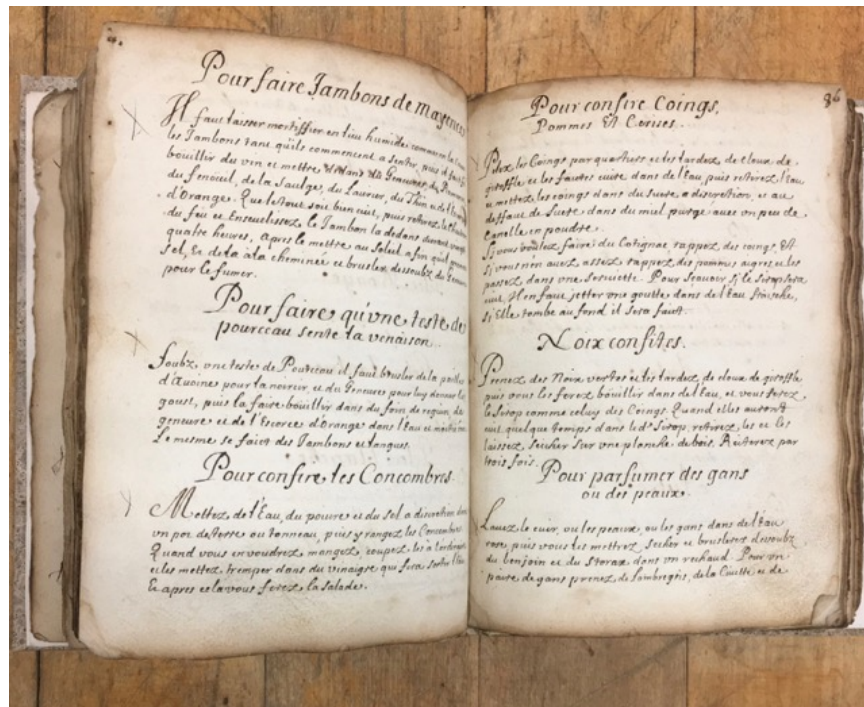 Pour faire Jambons de mayences
Il faut laisser mortiffier en lieu humide comme en la Cave
les Jambons tant quils commencent a sentir, puis il faut
bouillir du vin et mettre dedans du Genevre, du
du fenoüil, de la Saulge, du Laurier, du Thin, et de l'Escorce
d'Orange. Que le tout soit bien cuit, puis retirez le Chaudron
du feu et Enseuelissez le Jambon la dedans durant vingt
quatre heures, apres le mettre au Soleil afin quil prenne
sel, Et de la à la cheminée et brusler dessoubz du Genevre
pour le fumer.
Pour faire qu'vne teste de
pourceau sente la venaison.
Soubz vne teste de Pourceau il faut brusler de la paille
d'Avoine pour la noircir, et du Genevre pour luy donner le
goust, puis la faire boüillir dans du foin de regain, du
genevre et de l'Escorce d'Orange dans l'Eau
Le mesme se faict des Jambons et langues.
Pour confire les Concombres
Mettez de l'Eau, du poivre et du sel a discretion dans
vn pot de terre ou tonneau, puis y rangez les Concombres
Quand vous en voudrez mangez, coupez les à l'ordinaire
et les mettez tremper dans du vinaigre qui fera sortir l'Eau
Et apres cela vous ferez la salade.
86
Pour confire Coings,
Pommes Et Cerises.
Pelez les Coings par quartiers et les lardez de cloux de
giroffle et les faites cuire dans de l'Eau, puis retirez l'Eau
et mettez les coings dans du sucre a discretion, et au
deffaut de sucre dans du miel purgé avec vn peu de
Canelle en poudre.
Si vous voulez faire du Cotignac, rappez des coings, Et
Si vous n'en avez assez rappez des pommes aigres et les
passez dans vne serviette. Pour sçavoir si le sirop sera
cuit, Il en faut jetter vne goutte dans de l'Eau fraische,
Si Elle tombe au fond il sera faict.
Noix confites.
Prenez des Noix vertes et les lardez de cloux de giroffle
puis vous les ferez boüillir dans de l'Eau, et vous ferez
le sirop comme celuy des Coings. Quand elles auront
cuit quelque temps dans le d. sirop, retirez les et les
laissez seicher sur vne planche de bois. Reiterez par
trois fois.
Pour parfumer des gans
ou des peaux.
Lavez le cuir, ou les peaux, ou les gans dans de l'Eau
rose, puis vous les mettrez secher et bruslerez dessoubz
du benjoin et du storax dans vn rechaud. Pour vn
paire de gans prenez de Lambregris, de la Civette et de